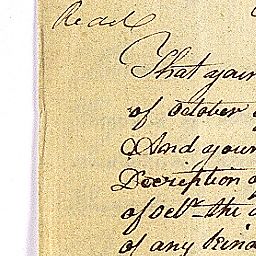 Read
That your
of October
And your
Decription of
of Octr the
of any kind